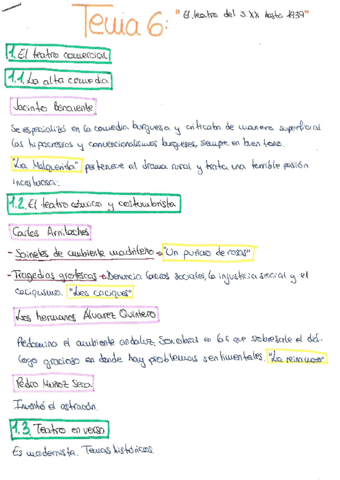 Tema 6: "El teatro del S.XX hasta 1939"
1. El teatro comercial
1.1. La alta comedia
Jacinto Benavente
Se especializó en la comedia burguesa y criticaba de manera superficial
las hipocresías y convencionalismos burgueses, siempre en buen tono.
"La Malquerida" pertenece al drama rural y trata una terrible pasión
incestuosa.
1.2. El teatro cómico y costumbrista
Carlos Arniches
- Sainetes de ambiente madrileño → "Un puñao de rosas"
- Tragedias grotescas → Denuncia lacras sociales, la injusticia social y el
caciquismo. "Los caciques"
Los hermanos Álvarez Quintero
Predomina el ambiente andaluz. Son obras en las que sobresale el diá-
logo gracioso en donde hay problemas sentimentales.
Pedro Muñoz Seca
Inventó el astracán.
1.3. Teatro en verso
Es modernista. Temas históricos.